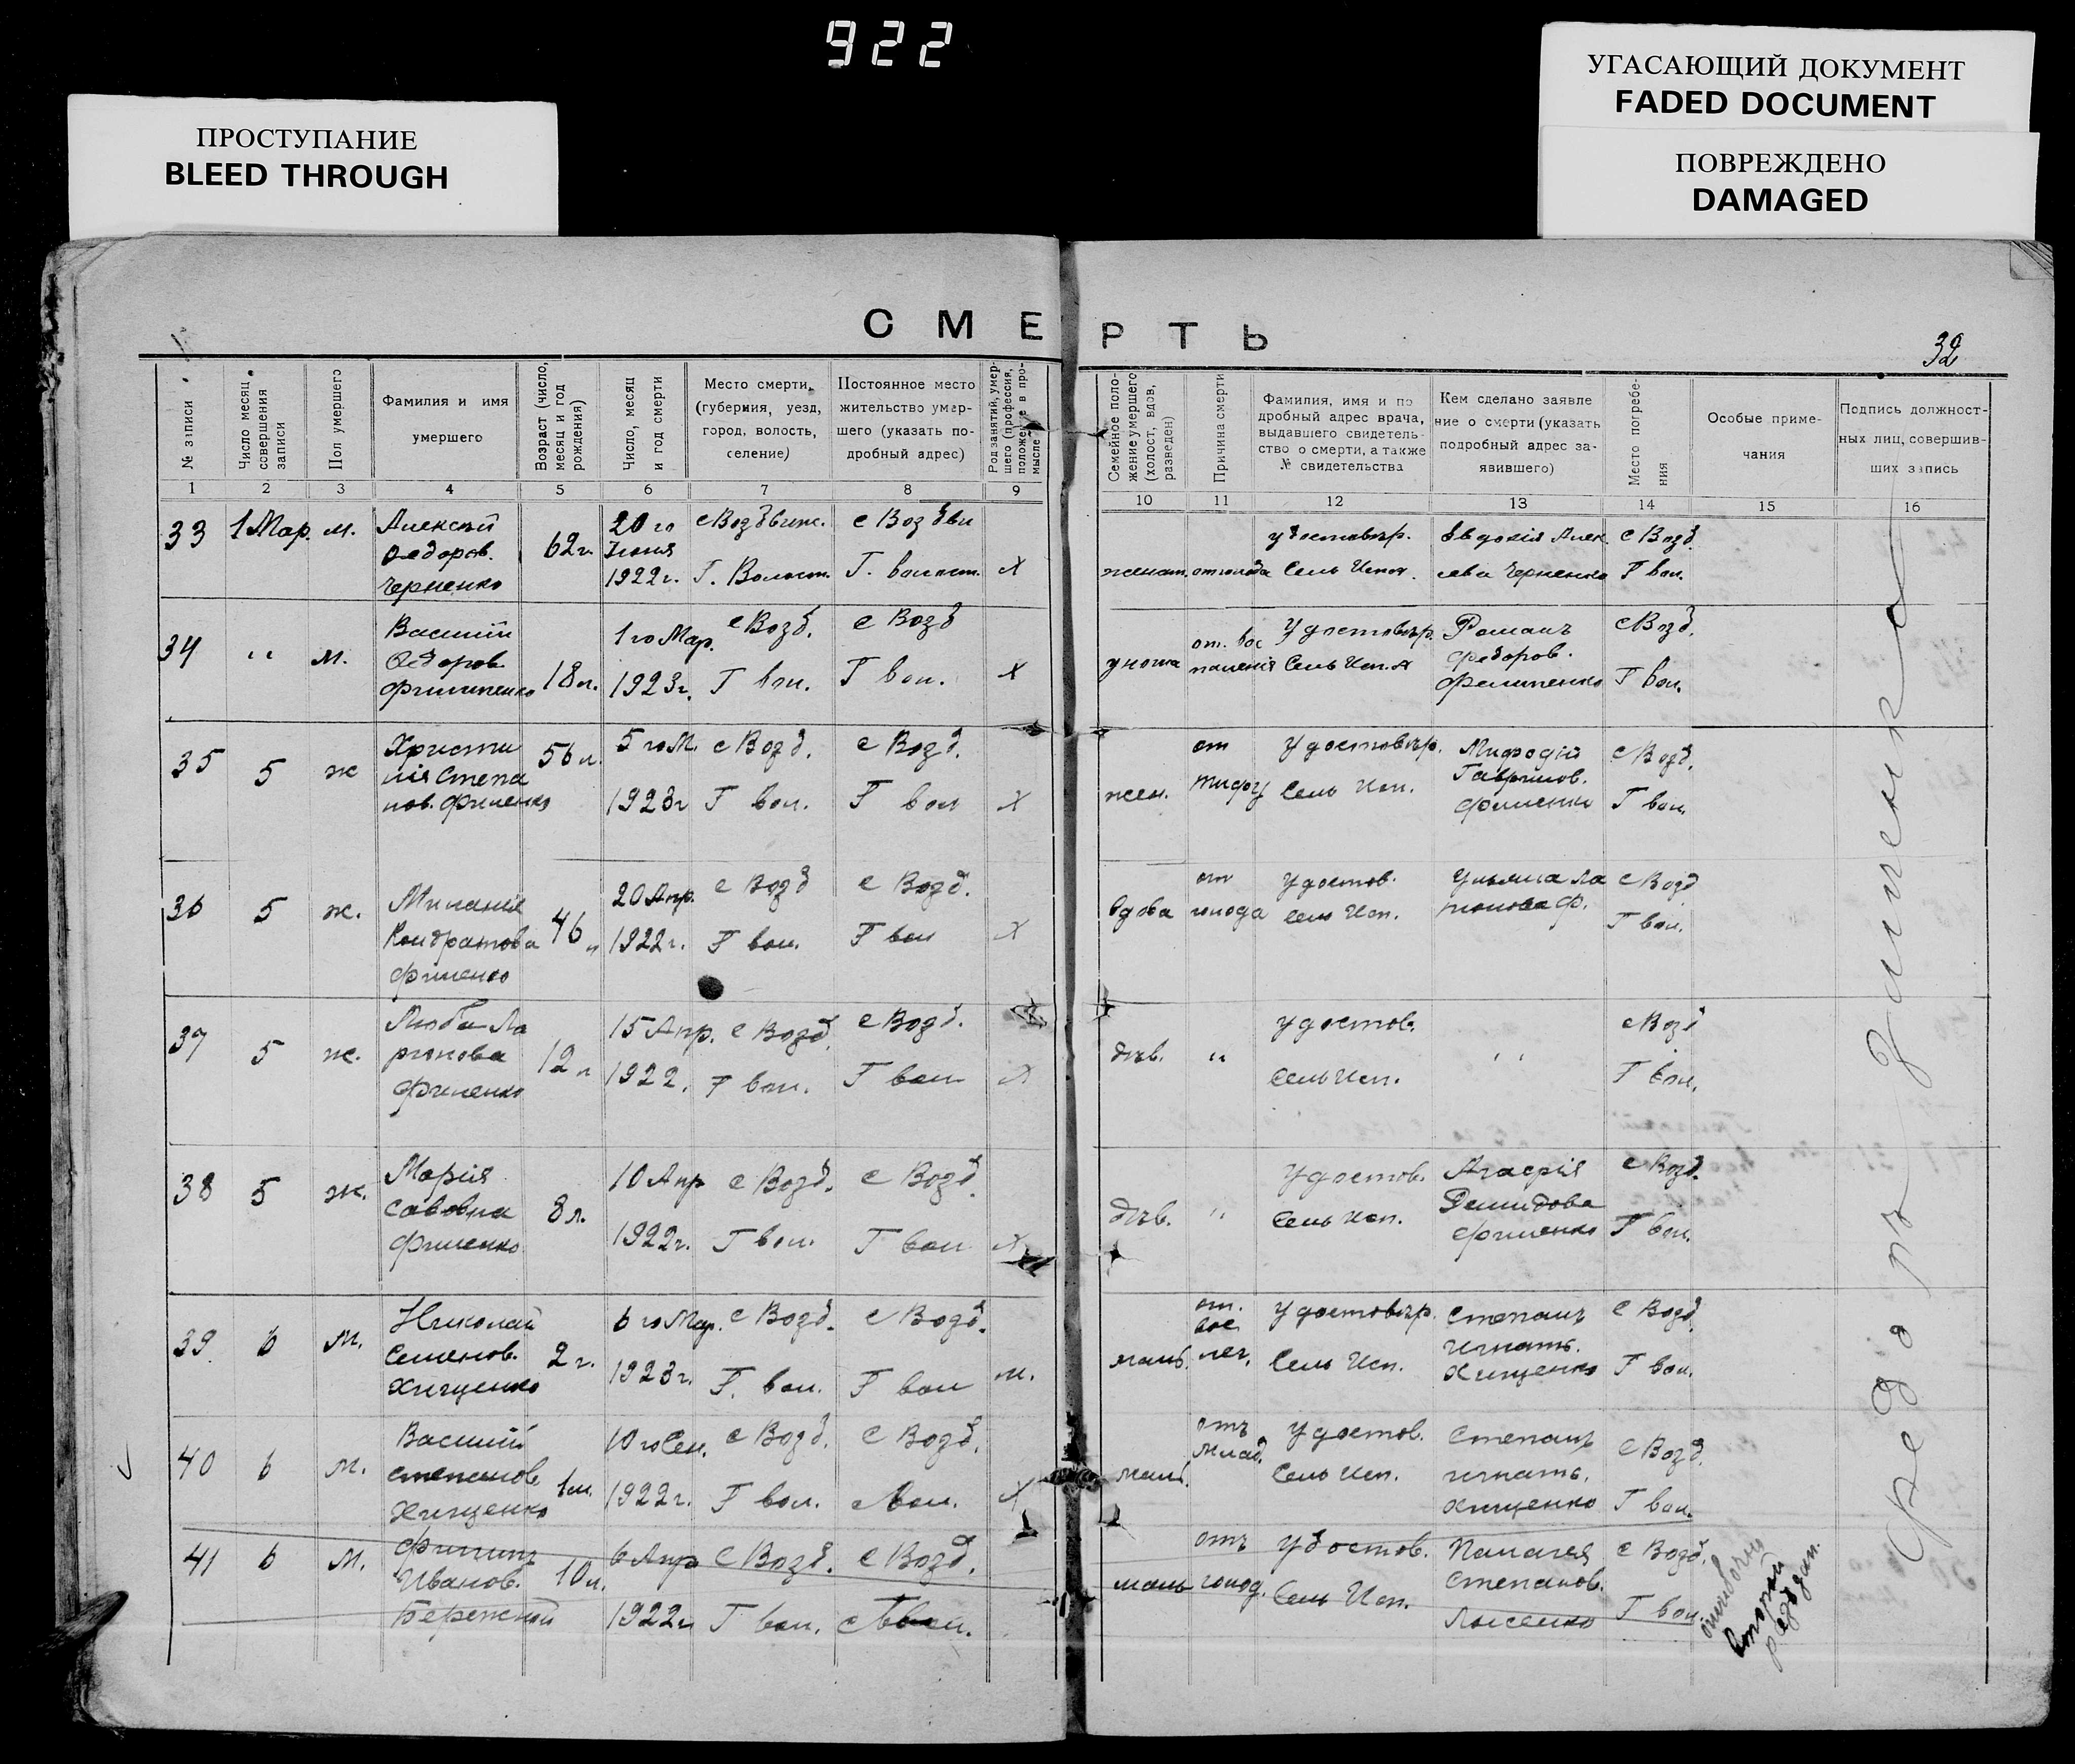 922
ПРОСТУПАНИЕ
BLEED THROUGH
УГАСАЮЩИЙ ДОКУМЕНТ
FADED DOCUMENT
ПОВРЕЖДЕНО
DAMAGED
СМЕРТЬ
32
№ записи
Число месяц совершения записи
Пол умершего
Фамилия и имя умершего
Возраст (число, месяц и год рождения)
Число, месяц и год смерти
Место смерти, (губерния, уезд, город, волость, селение)
Постоянное место жительство умершего (указать подробный адрес)
Род занятий, умершего (профессия, положение в промысле
Семейное положение умершего (холост, вдов, разведен)
Причина смерти
Фамилия, имя и подробный адрес врача, выдавшего свидетельство о смерти, а также № свидетельства
Кем сделано заявление о смерти (указать подробный адрес заявившего)
Место погребения
Особые примечания
Подпись должностных лиц, совершивших запись
1 2 3 4 5 6 7 8 9 10 11 12 13 14 15 16
33 1 Мар. м. Алексей Федоров. Черненко 62 г. 20 го Июня 1922 г. с Воздвиж. Г. Волост. с Воздви Г. волост. х
женат. от голода удостовѣр. Сель Испол. Евдокія Алексеева Черненко с Возд. Г вол.
34 " м. Василій Федоров Филипенко 18 л. 1 го Мар. 1923 г. с Возд. Г вол. с Возд Г вол. х
юноша от. вос паленія Удостовѣр. Сель Исп. Романъ Федоров. Филипенко с Возд. Г вол.
35 5 ж Христи нія Степа нов. Филенко 56 л. 5 го М. 1923 г с Возд. Г вол. с Возд. Г вол х
жен. от тифу Удостовѣр. Сель Исп. Мифодій Гаврилов. Филенко с Возд. Г вол.
36 5 ж. Миланія Кондратова Филенко 46 л 20 Апр. 1922 г. с Возд Г вол. с Возд. Г вол х
вдова от голода Удостов. Сель Исп. Ульяна Ла рионова Ф. с Возд Г вол.
37 5 ж. Люба Ла рионова Филенко 12 л 15 Апр. 1922. с Возд. Г вол. с Возд. Г вол х
дѣв. " Удостов. Сель Исп. " с Возд Г вол.
38 5 ж. Марія Савовна Филенко 8 л. 10 Апр 1922 г. с Возд. Г вол. с Возд. Г вол х
дѣв. " Удостов. Сель Исп. Агафія Демидова Филенко с Возд. Г вол.
39 6 м. Николай Семенов. Хищенко 2 г. 6 го Мар. 1923 г. с Возд. Г. вол. с Возд. Г вол м.
маль. от. вос. лег. Удостовѣр. Сель Исп. Степанъ Игнать. Хищенко с Возд. Г вол.
40 6 м. Василий Степанов. Хищенко 1 м. 10 го Сен. 1922 г. с Возд. Г вол. с Возд. вол. х
маль. отъ млад. Удостов. Сель Исп. Степанъ Игнать. Хищенко с Возд. Г вол.
41 6 м. Филипъ Иванов. Бережной 10 л. 6 Апр 1922 г. с Возд. Г вол. с Возд. Г вол.
маль отъ голод. Удостов. Сель Исп. Палагея Степанов. Лысенко с Возд. Г вол.
ошибочно второй раз зап.